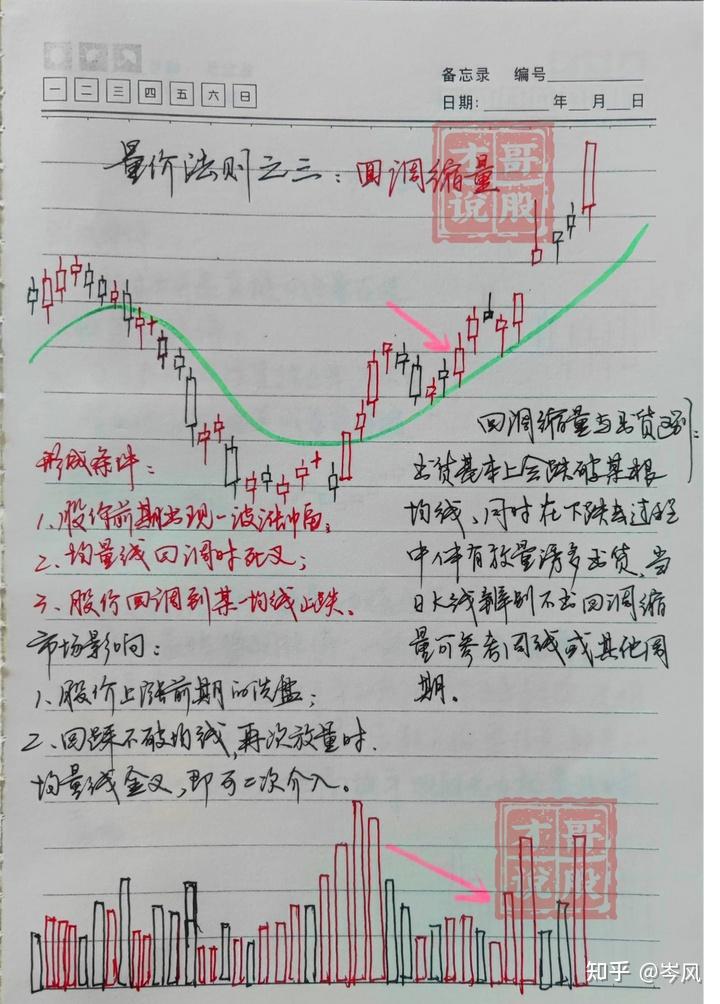 备忘录 编号
一 二 三 四 五 六 日
日期: 年 月 日
量价法则之三：回调缩量
才哥
说股
回调缩量与出货区别：
出货基本上会跌破某根
均线、同时在下跌去过程
中伴有放量诱多出货，当
日K线辨别不出回调缩
量可参考周线或其他周
期。
形成条件：
1、股价前期出现一波涨幅；
2、均量线回调时死叉；
3、股价回调到某一均线止跌。
市场影响：
1、股价上涨前期的洗盘；
2、回踩不破均线，再次放量时.
均量线金叉，即可二次介入。
才哥
说股
知乎 @岑风